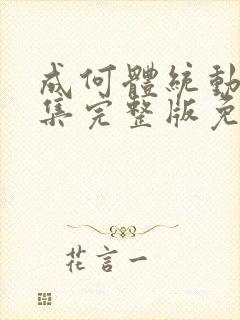 成何體統動
集完整版免
花言一